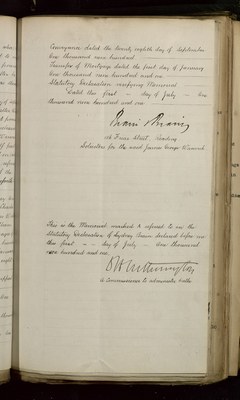 Conveyance dated the twenty eighth day of September
One thousand nine hundred
Transfer of Mortgage dated the first day of January
One thousand nine hundred and one
Statutory Declaration verifying Memorial
Dated this first day of July One
thousand nine hundred and one.
Brain & Brain
Friar Street, Reading
Solicitors for the said James George
This is the Memorial marked A referred to in the
Statutory Declaration of Sydney Brain declared before me
this first day of July One thousand
nine hundred and one.
A Commissioner to administer Oaths